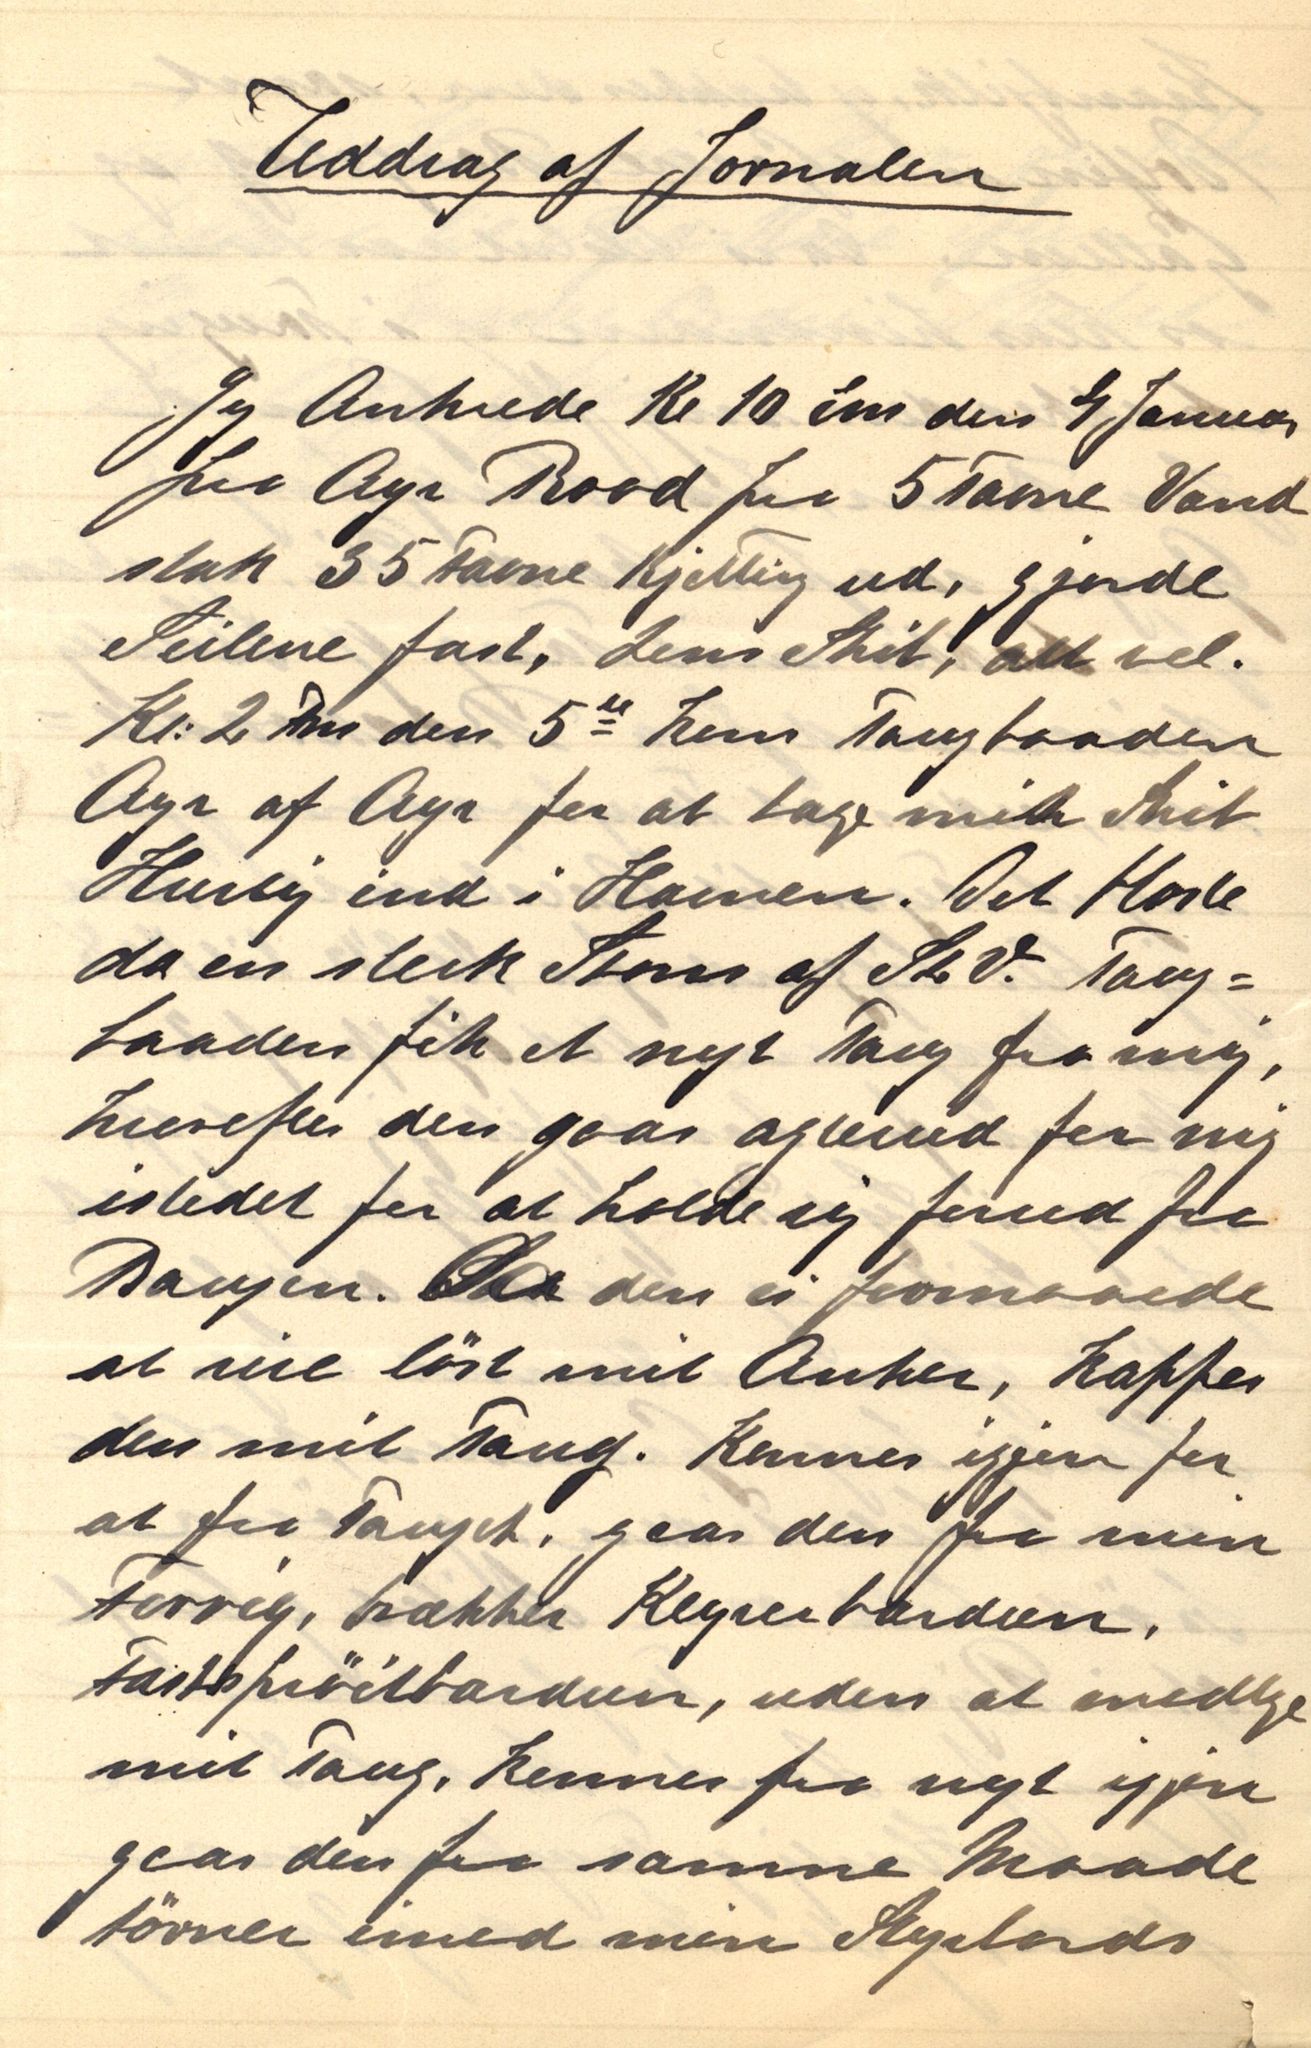 Uddrag af Jornalen
Jeg Ankrede Kl 10 Em den 4 Januar
paa Ayr Rood paa 5 Favne Vand
stak 35 Favne Kjetting ud, gjorde
Seilene fast, Lens Skib, alt vel.
Kl: 2 Fm den 5te kom Taugbaaden
Ayr af Ayr for at tage mit Skib
Hurtig ind i Havnen. Det blæste
da en sterk Storm af S V. Taug=
baaden fik et nyt Taug fra mig,
hvorefter den gaar agterud for mig
istedet for at holde sig forud fra
Baugen. Da den ei formaaede
at rive löst mit Anker, kapper
den mit Taug. Kommer igjen for
at faa Tauget, gaar den paa min
Forrig, brækker Klyverbarduun,
Forspröitbarduun, uden at modtge
mit Taug, kommer paa nyt igjen
gaar den paa samme Maade
törner imod min Styrbords